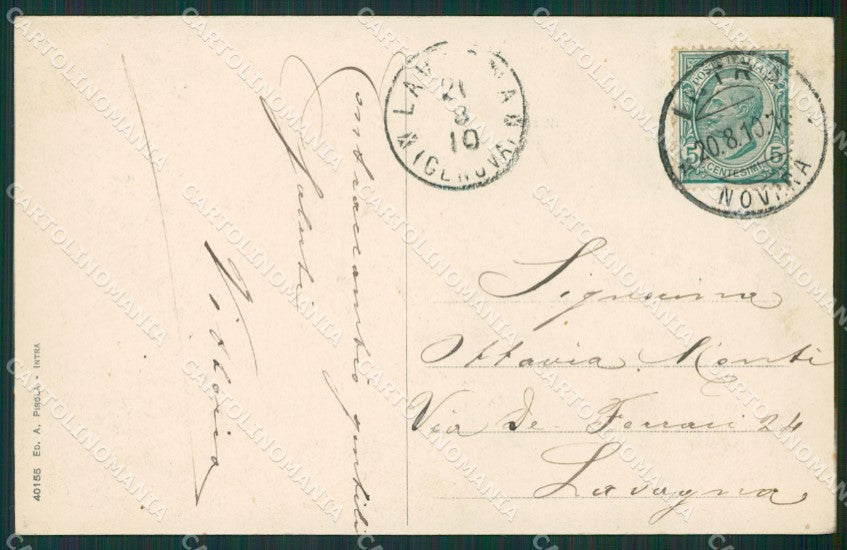 Contraccambio gentili
saluti
Vittoria
40155 ED. A. PIROLA - INTRA
LAVAGNA
21
8
10
(GENOVA)
POSTE ITALIANE
5 5
CENTESIMI
INTRA
20.8.10
NOVARA
Signorina
Ottavia Monti
Via De Ferrari 24
Lavagna
CARTOLINOMANIA